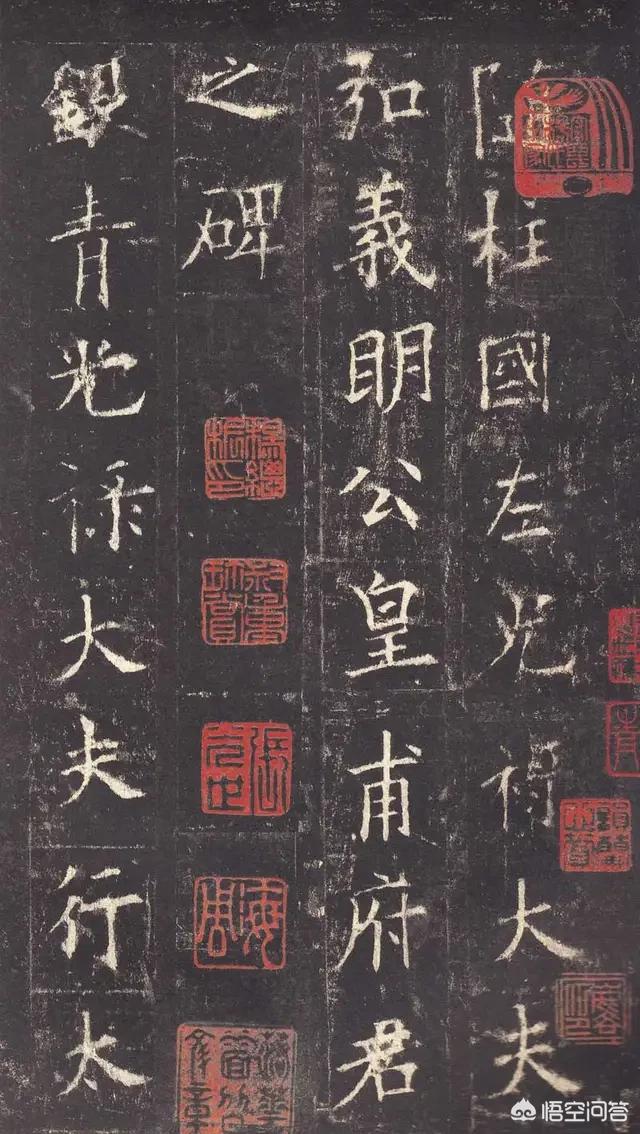 隋柱國左光祿大夫
弘義明公皇甫府君
之碑
銀青光祿大夫行太
悟空问答